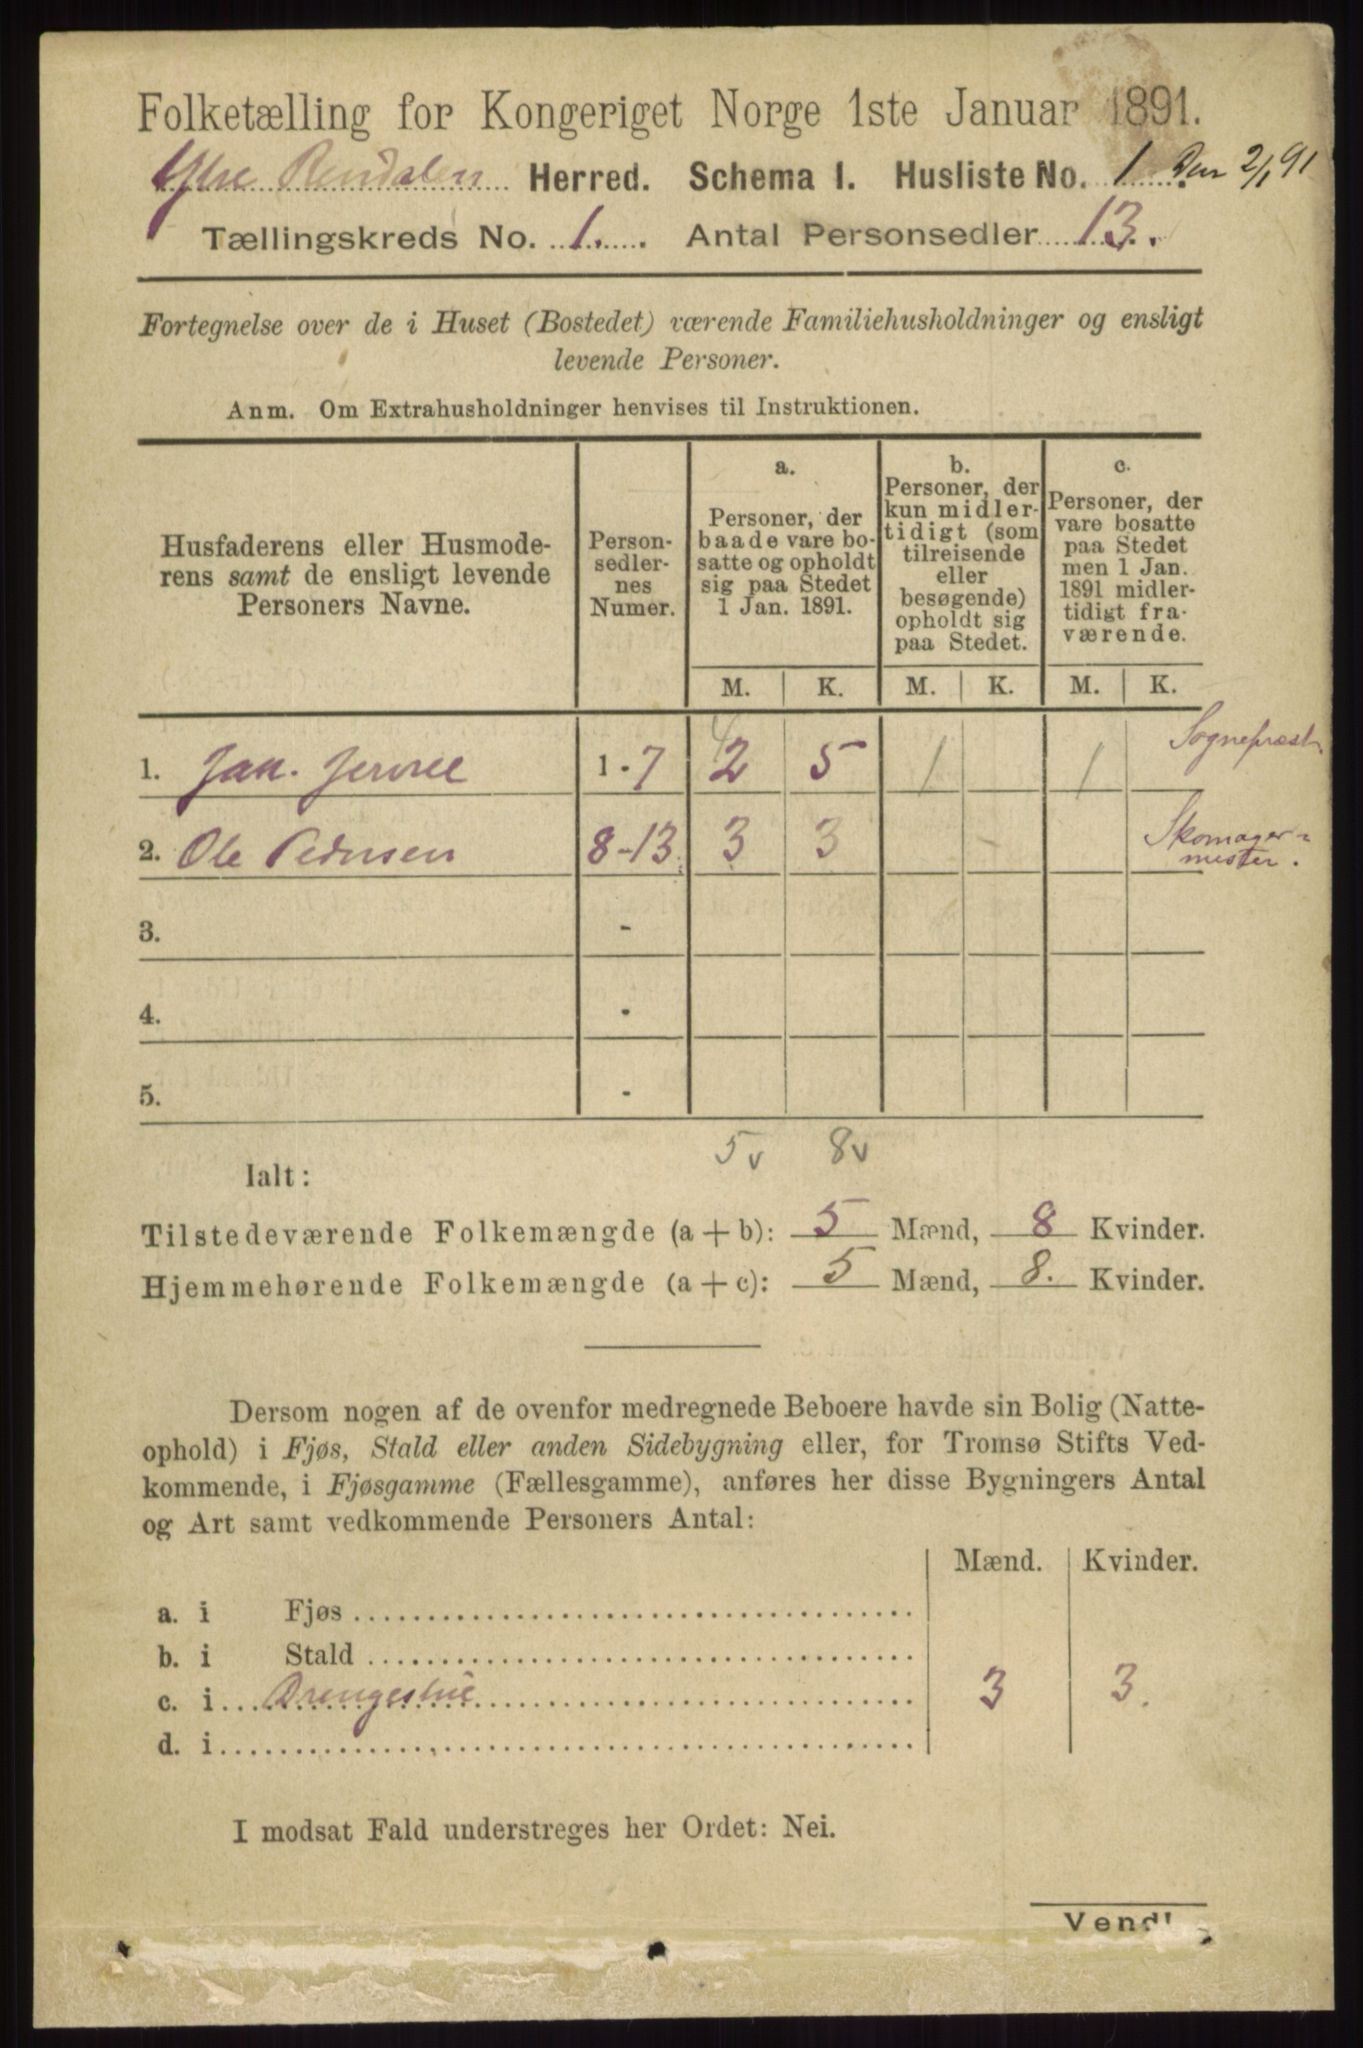 Folketælling for Kongeriget Norge 1ste Januar 1891.
Ytre Rendalen Herred. Schema I. Husliste No. 1 Den 2/1 91
Tællingskreds No. 1. Antal Personsedler 13.
Fortegnelse over de i Huset (Bostedet) værende Familiehusholdninger og ensligt
levende Personer.
Anm. Om Extrahusholdninger henvises til Instruktionen.
Husfaderens eller Husmode-
rens samt de ensligt levende
Personers Navne.
Person-
sedler-
nes
Numer.
a.
Personer, der
baade vare bo-
satte og opholdt
sig paa Stedet
1 Jan. 1891.
b.
Personer, der
kun midler-
tidigt (som
tilreisende
eller
besøgende)
opholdt sig
paa Stedet.
c.
Personer, der
vare bosatte
paa Stedet
men 1 Jan.
1891 midler-
tidigt fra-
værende.
M. K. M. K. M. K.
1. Jan. 1-7 2 5 1 1 Sogneprest
2. Ole Pedersen 8-13 3 3 Skomager-
mester.
3. -
4. -
5. -
5v 8v
Ialt:
Tilstedeværende Folkemængde (a + b): 5 Mænd, 8 Kvinder.
Hjemmehørende Folkemængde (a + c): 5 Mænd, 8. Kvinder.
Dersom nogen af de ovenfor medregnede Beboere havde sin Bolig (Natte-
ophold) i Fjøs, Stald eller anden Sidebygning eller, for Tromsø Stifts Ved-
kommende, i Fjøsgamme (Fællesgamme), anføres her disse Bygningers Antal
og Art samt vedkommende Personers Antal:
Mænd. Kvinder.
a. i Fjøs
b. i Stald
c. i Drengestue 3 3.
d. i
I modsat Fald understreges her Ordet: Nei.
Vend!